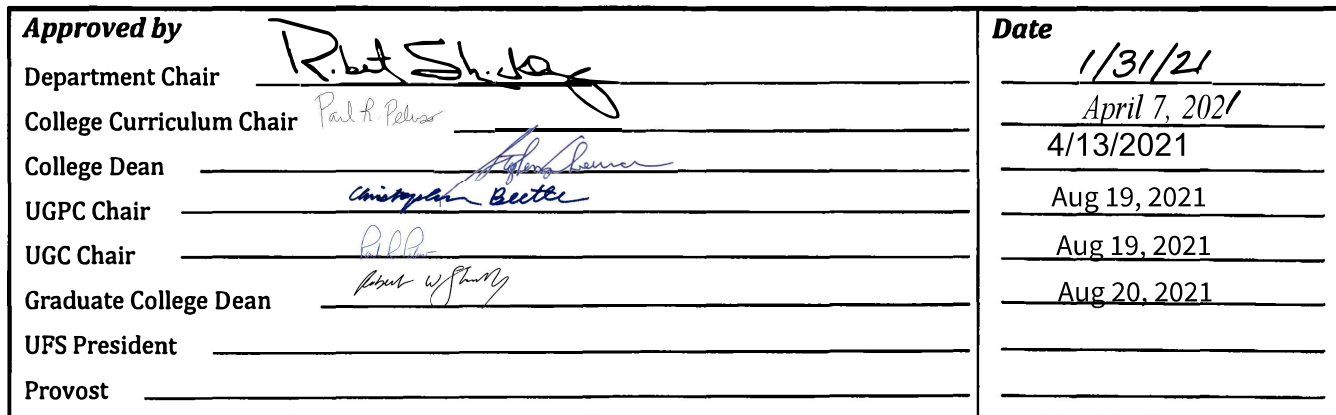 Approved by Date
Department Chair 1/31/21
College Curriculum Chair Paul R. Peluso April 7, 2021
College Dean 4/13/2021
UGPC Chair Christopher Beetle Aug 19, 2021
UGC Chair Aug 19, 2021
Graduate College Dean Robert W Aug 20, 2021
UFS President
Provost